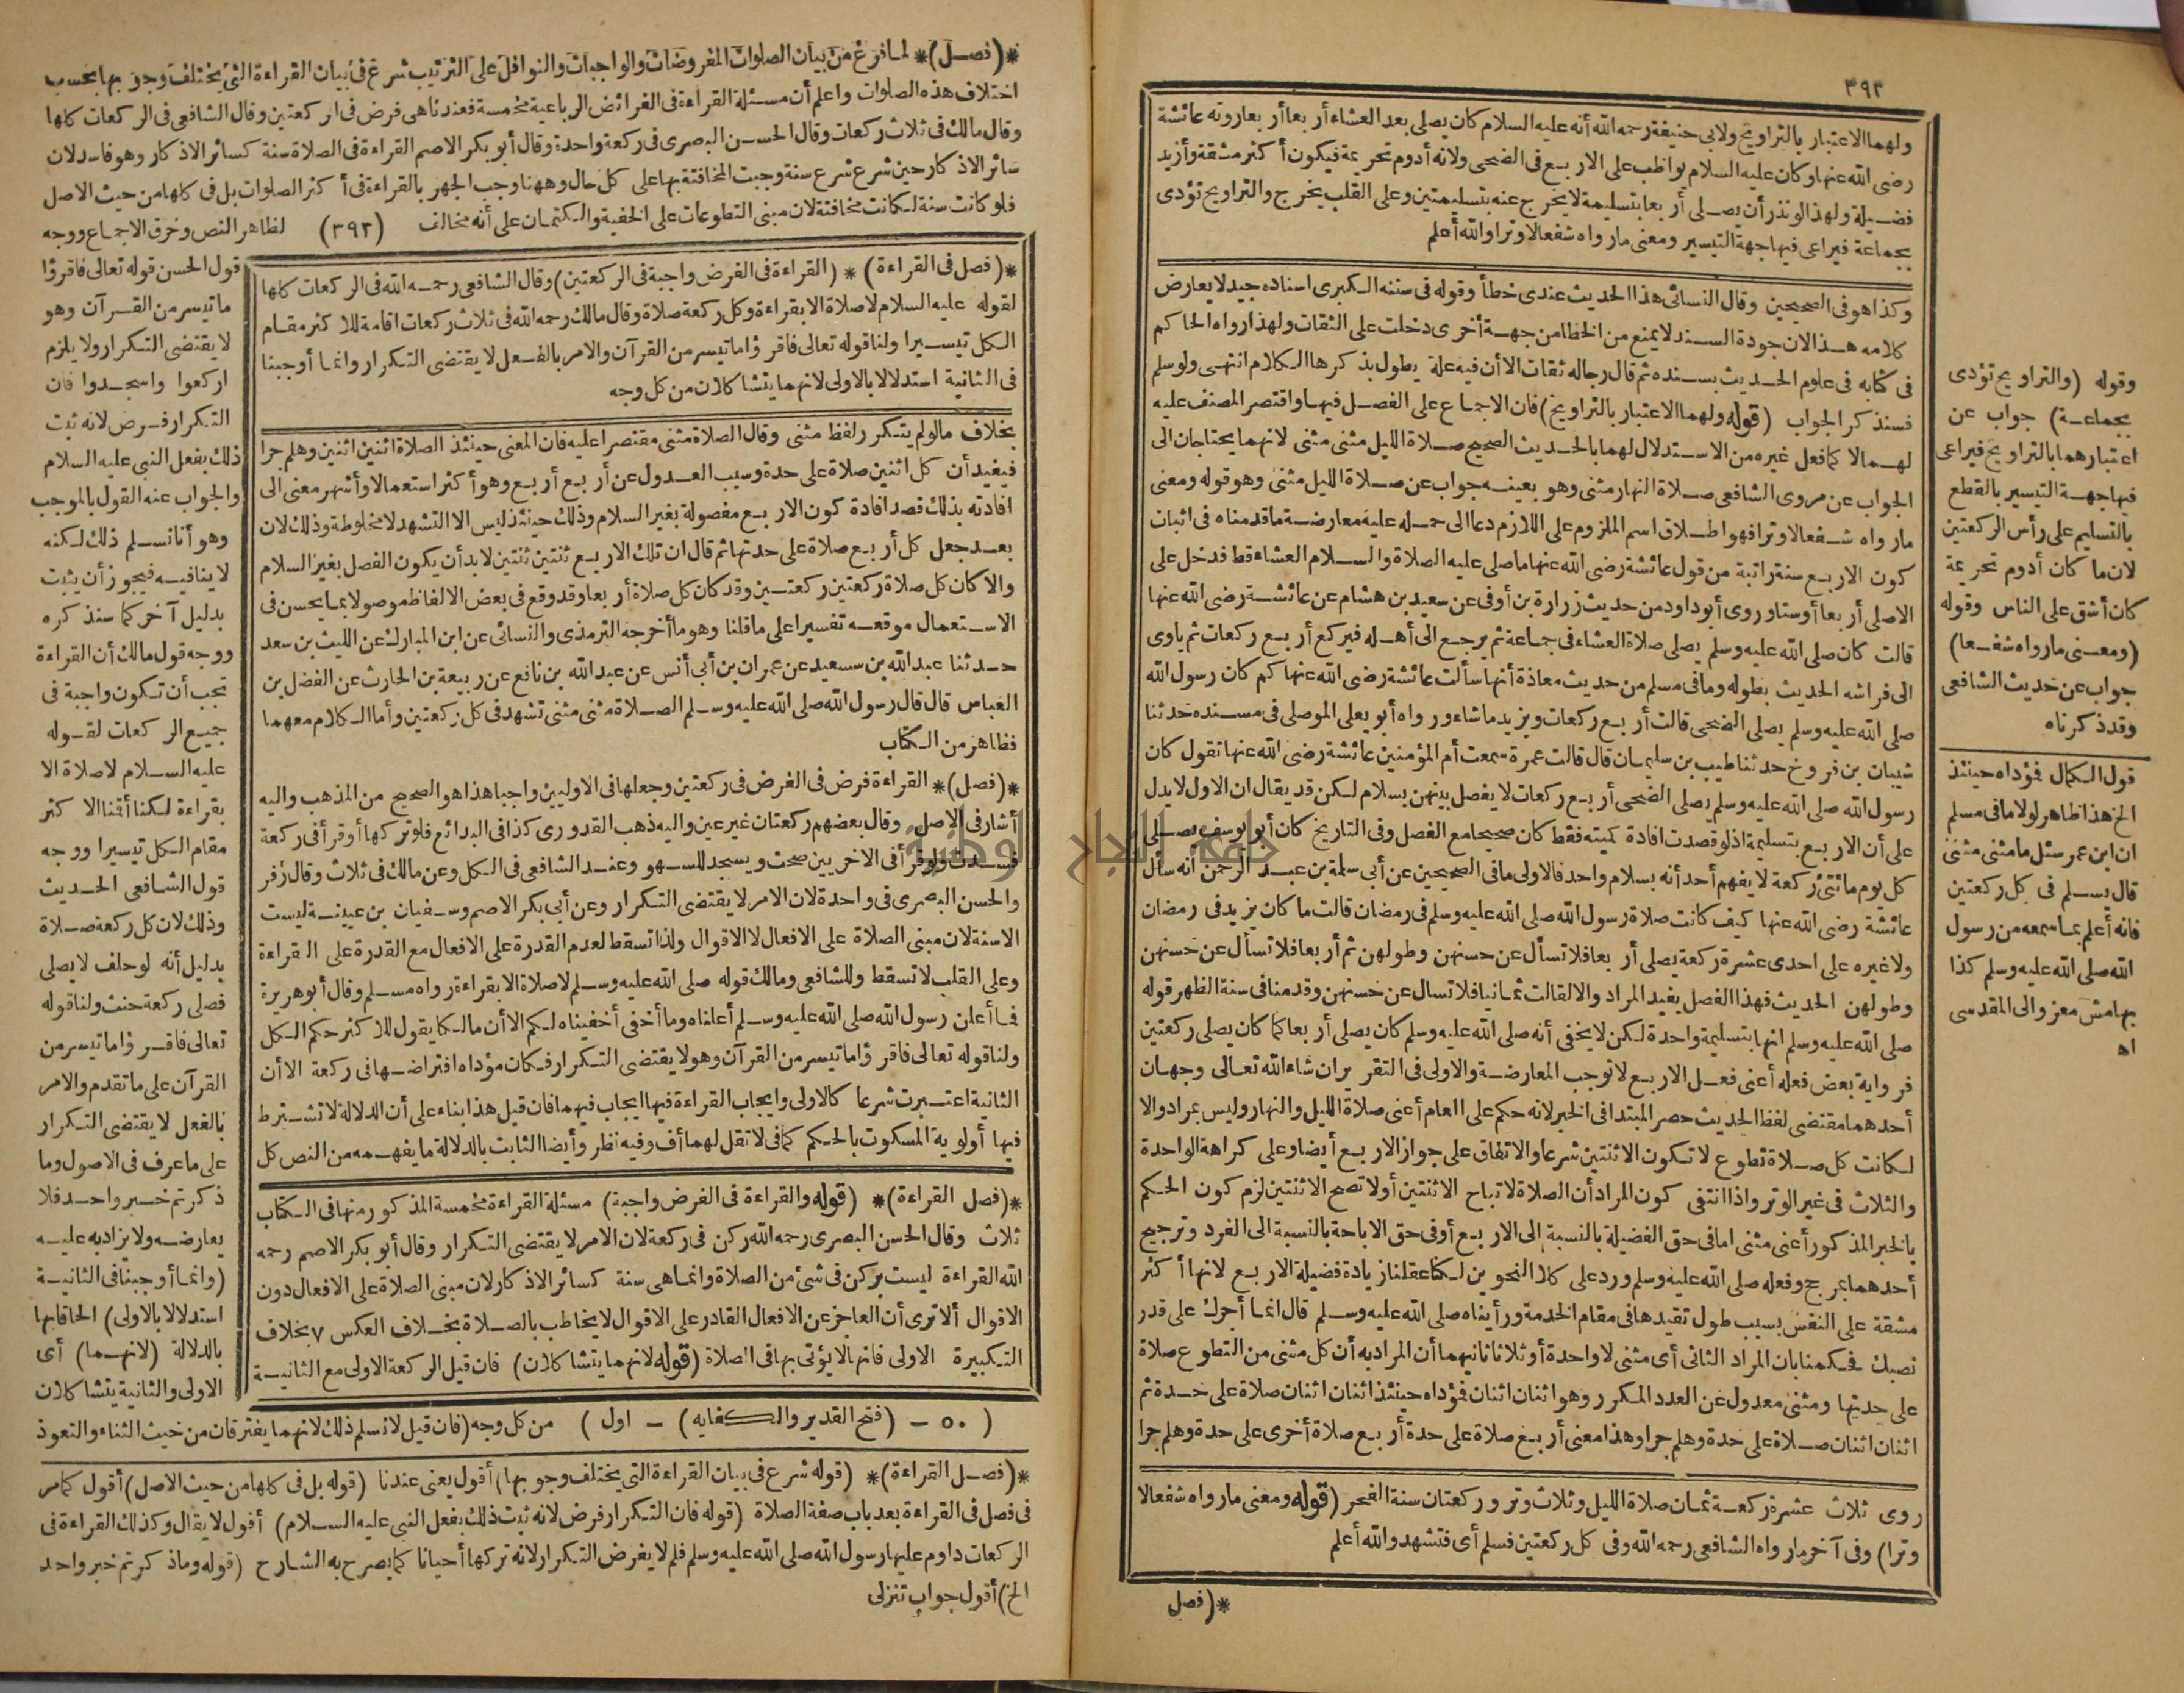 ٣٩٢
ولهما الاعتبار بالتراويح ولابى حنيفة رحمه الله أنه عليه السلام كان يصلى بعد العشاء أربعا أربعا روته عائشة
رضى الله عنها وكان عليه السلام يواظب على الاربع فى الضحى ولانه أدوم تحريمة فيكون أكثر مشقة وأزيد
فضيلة ولهذا لو نذر أن يصلى أربعا بتسليمة لا يخرج عنه بتسليمتين وعلى القلب يخرج والتراويح تؤدى
بجماعة فيراعى فيها جهة التيسير ومعنى ما رواه شفعا لا وترا والله أعلم
وكذا هو فى الصحيحين وقال النسائى هذا الحديث عندى خطأ وقوله فى سننه الكبرى اسناده جيد لا يعارض
كلامه هذا لان جودة السند لا يمنع من الخطا من جهة أخرى دخلت على الثقات ولهذا رواه الحاكم
فى كتابه فى علوم الحديث بسنده ثم قال رجاله ثقات الا أن فيه علة يطول بذكرها الكلام انتهى ولو سلم
فسنذكر الجواب (قوله ولهما الاعتبار بالتراويح) فان الاجماع على الفصل فيها واقتصر المصنف عليه
لهما لا كما فعل غيره من الاستدلال لهما بالحديث الصحيح صلاة الليل مثنى مثنى لانهما يحتاجان الى
الجواب عن مروى الشافعى صلاة النهار مثنى وهو بعينه جواب عن صلاة الليل مثنى وهو قوله ومعنى
ما رواه شفعا لا وترا فهو اطلاق اسم الملزوم على اللازم دعا الى حمله عليه معارضة ما قدمناه فى اثبات
كون الاربع سنة راتبة من قول عائشة رضى الله عنها ما صلى عليه الصلاة والسلام العشاء قط فدخل على
الا صلى أربعا أو ستا وروى أبو داود من حديث زرارة بن أوفى عن سعيد بن هشام عن عائشة رضى الله عنها
قالت كان صلى الله عليه وسلم يصلى صلاة العشاء فى جماعة ثم يرجع الى أهله فيركع أربع ركعات ثم ياوى
الى فراشه الحديث بطوله وما فى مسلم من حديث معاذة أنها سألت عائشة رضى الله عنها كم كان رسول الله
صلى الله عليه وسلم يصلى الضحى قالت أربع ركعات ويزيد ما شاء ورواه أبو يعلى الموصلى فى مسنده حدثنا
شيبان بن فروخ حدثنا طيب بن سليمان قال قالت عمرة سمعت أم المؤمنين عائشة رضى الله عنها تقول كان
رسول الله صلى الله عليه وسلم يصلى الضحى أربع ركعات لا يفصل بينهن بسلام لكن قد يقال ان الاول لا يدل
على أن الاربع بتسليمة اذ لو قصدت افادة كميته فقط كان صحيحا مع الفصل وفى التاريخ كان أبو يوسف يصلى
كل يوم مائتى ركعة لا يفهم أحد أنه بسلام واحد فالاولى ما فى الصحيحين عن أبى سلمة بن عبد الرحمن أنه سأل
عائشة رضى الله عنها كيف كانت صلاة رسول الله صلى الله عليه وسلم فى رمضان قالت ما كان يزيد فى رمضان
ولا غيره على احدى عشرة ركعة يصلى أربعا فلا تسأل عن حسنهن وطولهن ثم أربعا فلا تسأل عن حسنهن
وطولهن الحديث فهذا الفصل يفيد المراد والا لقالت ثمانيا فلا تسال عن حسنهن وقدمنا فى سنة الظهر قوله
صلى الله عليه وسلم انها بتسليمة واحدة لكن لا يخفى أنه صلى الله عليه وسلم كان يصلى أربعا كما كان يصلى ركعتين
فرواية بعض فعله أعنى فعل الاربع لا توجب المعارضة والاولى فى التقرير ان شاء الله تعالى وجهان
أحدهما مقتضى لفظ الحديث حصر المبتدا فى الخبر لانه حكم على العام أعنى صلاة الليل والنهار وليس بمراد والا
لكانت كل صلاة تطوع لا تكون الا ثنتين شرعا والاتفاق على جواز الاربع أيضا وعلى كراهة الواحدة
والثلاث فى غير الوتر واذا انتفى كون المراد أن الصلاة لا تباح الا ثنتين أو لا تصح الا ثنتين لزم كون الحكم
بالخبر المذكور أعنى مثنى اما فى حق الفضيلة بالنسبة الى الاربع أو فى حق الاباحة بالنسبة الى الفرد وترجيح
أحدهما بمرجح وفعله صلى الله عليه وسلم ورد على كلا النحوين لكنا عقلنا زيادة فضيلة الاربع لانها أكثر
مشقة على النفس بسبب طول تقيدها فى مقام الخدمة ورأيناه صلى الله عليه وسلم قال انما أجرك على قدر
نصبك فحكمنا بان المراد الثانى أى مثنى لا واحدة أو ثلاثا ثانيهما أن المراد به أن كل مثنى من التطوع صلاة
على حدتها ومثنى معدول عن العدد المكرر وهو اثنان اثنان فمؤداه حينئذ اثنان اثنان صلاة على حدة ثم
اثنان اثنان صلاة على حدة وهلم جرا وهذا معنى أربع صلاة على حدة أربع صلاة أخرى على حدة وهلم جرا
روى ثلاث عشرة ركعة ثمان صلاة الليل وثلاث وتر وركعتان سنة الفجر (قوله ومعنى ما رواه شفعا لا
وترا) وفى آخر ما رواه الشافعى رحمه الله وفى كل ركعتين فسلم أى فتشهد والله أعلم
*(فصل
وقوله (والتراويح تؤدى
بجماعة) جواب عن
اعتبارهما بالتراويح فيراعى
فيها جهة التيسير بالقطع
بالتسليم على رأس الركعتين
لان ما كان أدوم تحريمة
كان أشق على الناس وقوله
(ومعنى ما رواه شفعا)
جواب عن حديث الشافعى
وقد ذكرناه
قول الكمال فمؤداه حينئذ
الخ هذا ظاهر لولا ما فى مسلم
ان ابن عمر سئل ما مثنى مثنى
قال يسلم فى كل ركعتين
فانه أعلم بما سمعه من رسول
الله صلى الله عليه وسلم كذا
بهامش معزوالى المقدسى
اه
*(فصل)* لما فرغ من بيان الصلوات المفروضات والواجبات والنوافل على الترتيب شرع فى بيان القراءة التى يختلف وجوبها بحسب
اختلاف هذه الصلوات واعلم أن مسئلة القراءة فى الفرائض الرباعية مخمسة فعندنا هى فرض فى الركعتين وقال الشافعى فى الركعات كلها
وقال مالك فى ثلاث ركعات وقال الحسن البصرى فى ركعة واحدة وقال أبو بكر الاصم القراءة فى الصلاة سنة كسائر الاذكار وهو فاسد لان
سائر الاذكار حين شرع شرع سنة وجبت المخافتة بها على كل حال وههنا وجب الجهر بالقراءة فى أكثر الصلوات بل فى كلها من حيث الاصل
فلو كانت سنة لكانت مخافتة لان مبنى التطوعات على الخفية والكتمان على أنه مخالف (٣٩٣) لظاهر النص وخرق الاجماع ووجه
*(فصل فى القراءة)* (القراءة فى الفرض واجبة فى الركعتين) وقال الشافعى رحمه الله فى الركعات كلها
لقوله عليه السلام لا صلاة الا بقراءة وكل ركعة صلاة وقال مالك رحمه الله فى ثلاث ركعات اقامة للاكثر مقام
الكل تيسيرا ولنا قوله تعالى فاقرؤا ما تيسر من القرآن والامر بالفعل لا يقتضى التكرار وانما أوجبنا
فى الثانية استدلالا بالاولى لانهما يتشاكلان من كل وجه
بخلاف ما لو لم يتكرر لفظ مثنى وقال الصلاة مثنى مقتصرا عليه فان المعنى حينئذ الصلاة اثنين اثنين وهلم جرا
فيفيد أن كل اثنين صلاة على حدة وسبب العدول عن أربع أربع وهو أكثر استعمالا وأشهر معنى الى
افادته بذلك قصد افادة كون الاربع مفصولة بغير السلام وذلك حينئذ ليس الا التشهد لا مخلوطة وذلك لان
بعد جعل كل أربع صلاة على حدتها ثم قال ان تلك الاربع ثنتين ثنتين لا بد أن يكون الفصل بغير السلام
والا كان كل صلاة ركعتين ركعتين وقد كان كل صلاة أربعا وقد وقع فى بعض الالفاظ موصولا بما يحسن فى
الاستعمال موقعه تفسيرا على ما قلنا وهو ما أخرجه الترمذى والنسائى عن ابن المبارك عن الليث بن سعد
حدثنا عبد الله بن سعيد عن عمران بن أبى أنس عن عبد الله بن نافع عن ربيعة بن الحارث عن الفضل بن
العباس قال قال رسول الله صلى الله عليه وسلم الصلاة مثنى مثنى تشهد فى كل ركعتين وأما الكلام معهما
فظاهر من الكتاب
*(فصل)* القراءة فرض فى الفرض فى ركعتين وجعلها فى الاوليين واجبا هذا هو الصحيح من المذهب واليه
أشار فى الاصل وقال بعضهم ركعتان غير عين واليه ذهب القدورى كذا فى البدائع فلو تركها أو قرأ فى ركعة
فسدت ولو قرأ فى الاخريين صحت ويسجد للسهو وعند الشافعى فى الكل وعن مالك فى ثلاث وقال زفر
والحسن البصرى فى واحدة لان الامر لا يقتضى التكرار وعن أبى بكر الاصم وسفيان بن عيينة ليست
الا سنة لان مبنى الصلاة على الافعال لا الاقوال ولذا تسقط لعدم القدرة على الافعال مع القدرة على القراءة
وعلى القلب لا تسقط وللشافعى ومالك قوله صلى الله عليه وسلم لا صلاة الا بقراءة رواه مسلم وقال أبو هريرة
فما أعلن رسول الله صلى الله عليه وسلم أعلناه وما أخفى أخفيناه لكم الا أن مالكا يقول للاكثر حكم الكل
ولنا قوله تعالى فاقرؤا ما تيسر من القرآن وهو لا يقتضى التكرار فكان مؤداه افتراضها فى ركعة الا أن
الثانية اعتبرت شرعا كالاولى وايجاب القراءة فيها ايجاب فيهما فان قيل هذا بناء على أن الدلالة لا تشترط
فيها أولوية المسكوت بالحكم كما فى لا تقل لهما أف وفيه نظر وأيضا الثابت بالدلالة ما يفهمه من النص كل
*(فصل القراءة)* (قوله والقراءة فى الفرض واجبة) مسئلة القراءة مخمسة المذكور منها فى الكتاب
ثلاث وقال الحسن البصرى رحمه الله ركن فى ركعة لان الامر لا يقتضى التكرار وقال أبو بكر الاصم رحمه
الله القراءة ليست بركن فى شئ من الصلاة وانما هى سنة كسائر الاذكار لان مبنى الصلاة على الافعال دون
الاقوال ألا ترى أن العاجز عن الافعال القادر على الاقوال لا يخاطب بالصلاة بخلاف العكس ٧ بخلاف
التكبيرة الاولى فانها لا يؤتى بها فى الصلاة (قوله لانهما يتشاكلان) فان قيل الركعة الاولى مع الثانية
قول الحسن قوله تعالى فاقرؤا
ما تيسر من القرآن وهو
لا يقتضى التكرار ولا يلزم
اركعوا واسجدوا فان
التكرار فرض لانه ثبت
ذلك بفعل النبى عليه السلام
والجواب عنه القول بالموجب
وهو أنا نسلم ذلك لكنه
لا ينافيه فيجوز أن يثبت
بدليل آخر كما سنذكره
ووجه قول مالك أن القراءة
تجب أن تكون واجبة فى
جميع الركعات لقوله
عليه السلام لا صلاة الا
بقراءة لكنا أقنا الاكثر
مقام الكل تيسيرا ووجه
قول الشافعى الحديث
وذلك لان كل ركعة صلاة
بدليل أنه لو حلف لا يصلى
فصلى ركعة حنث ولنا قوله
تعالى فاقرؤا ما تيسر من
القرآن على ما تقدم والامر
بالفعل لا يقتضى التكرار
على ما عرف فى الاصول وما
ذكرتم خبر واحد فلا
يعارضه ولا يزاد به عليه
(وانما أوجبنا فى الثانية
استدلالا بالاولى) الحاقا بها
بالدلالة (لانهما) أى
الاولى والثانية يتشاكلان
( ٥٠ – (فتح القدير والكفايه) – اول ) من كل وجه (فان قيل لا نسلم ذلك لانهما يفترقان من حيث الثناء والتعوذ
*(فصل القراءة)* (قوله شرع فى بيان القراءة التى يختلف وجوبها) أقول يعنى عندنا (قوله بل فى كلها من حيث الاصل) أقول كما مر
فى فصل فى القراءة بعد باب صفة الصلاة (قوله فان التكرار فرض لانه ثبت ذلك بفعل النبى عليه السلام) أقول لا يقال وكذلك القراءة فى
الركعات داوم عليها رسول الله صلى الله عليه وسلم فلم لا يفرض التكرار لانه تركها أحيانا كما يصرح به الشارح (قوله وما ذكرتم خبر واحد
الخ) أقول جواب تنزلى
جامعة النجاح الوطنية